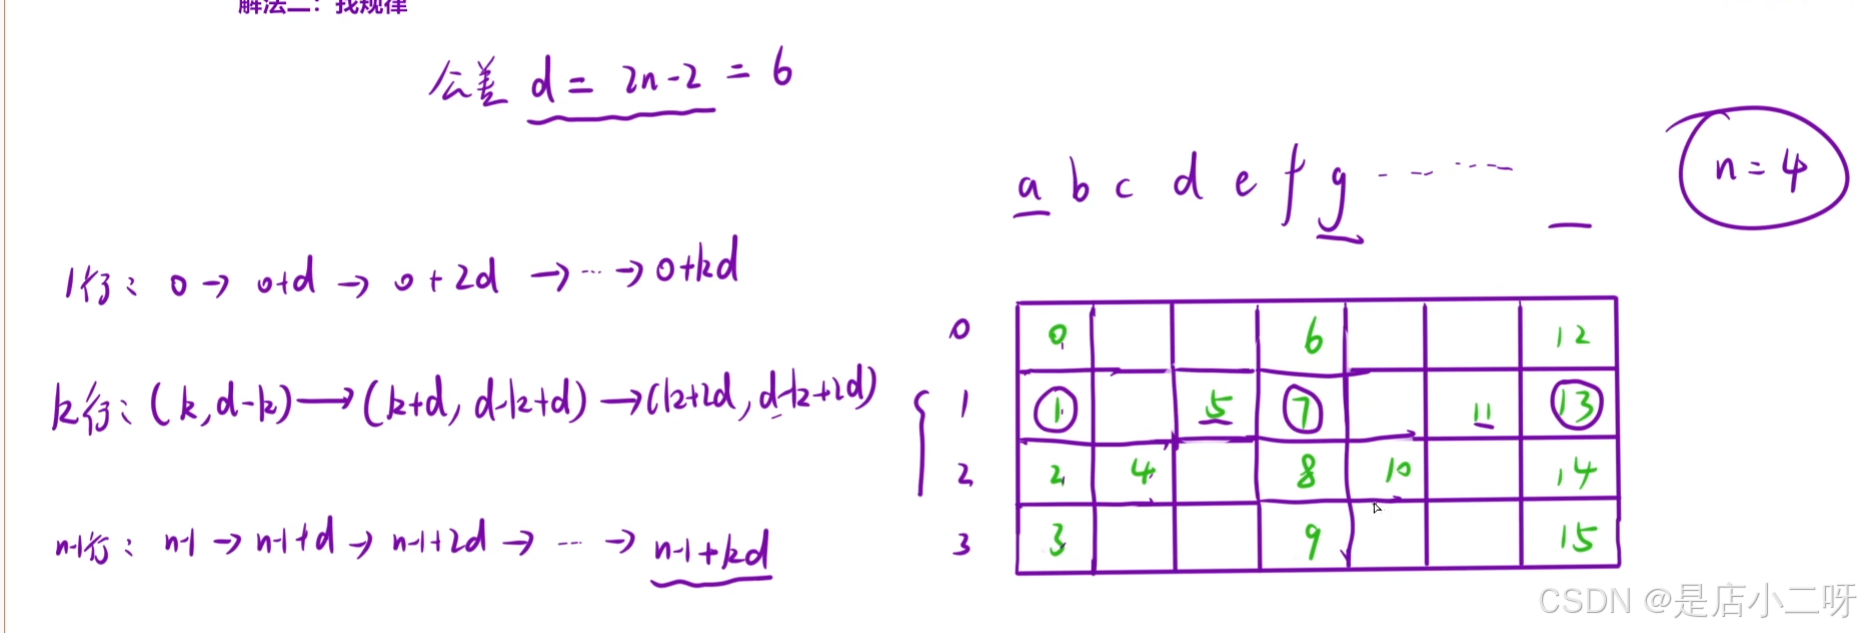 解法二：找规律
公差 d = 2n-2 = 6
n = 4
a b c d e f g ------
1行: 0 → 0+d → 0+2d → ... → 0+kd
0 0 6 12
k行: (k, d-k) → (k+d, d-k+d) → (k+2d, d-k+2d)
1 1 5 7 11 13
2 2 4 8 10 14
n-1行: n-1 → n-1+d → n-1+2d → ... → n-1+kd
3 3 9 15
CSDN @是店小二呀